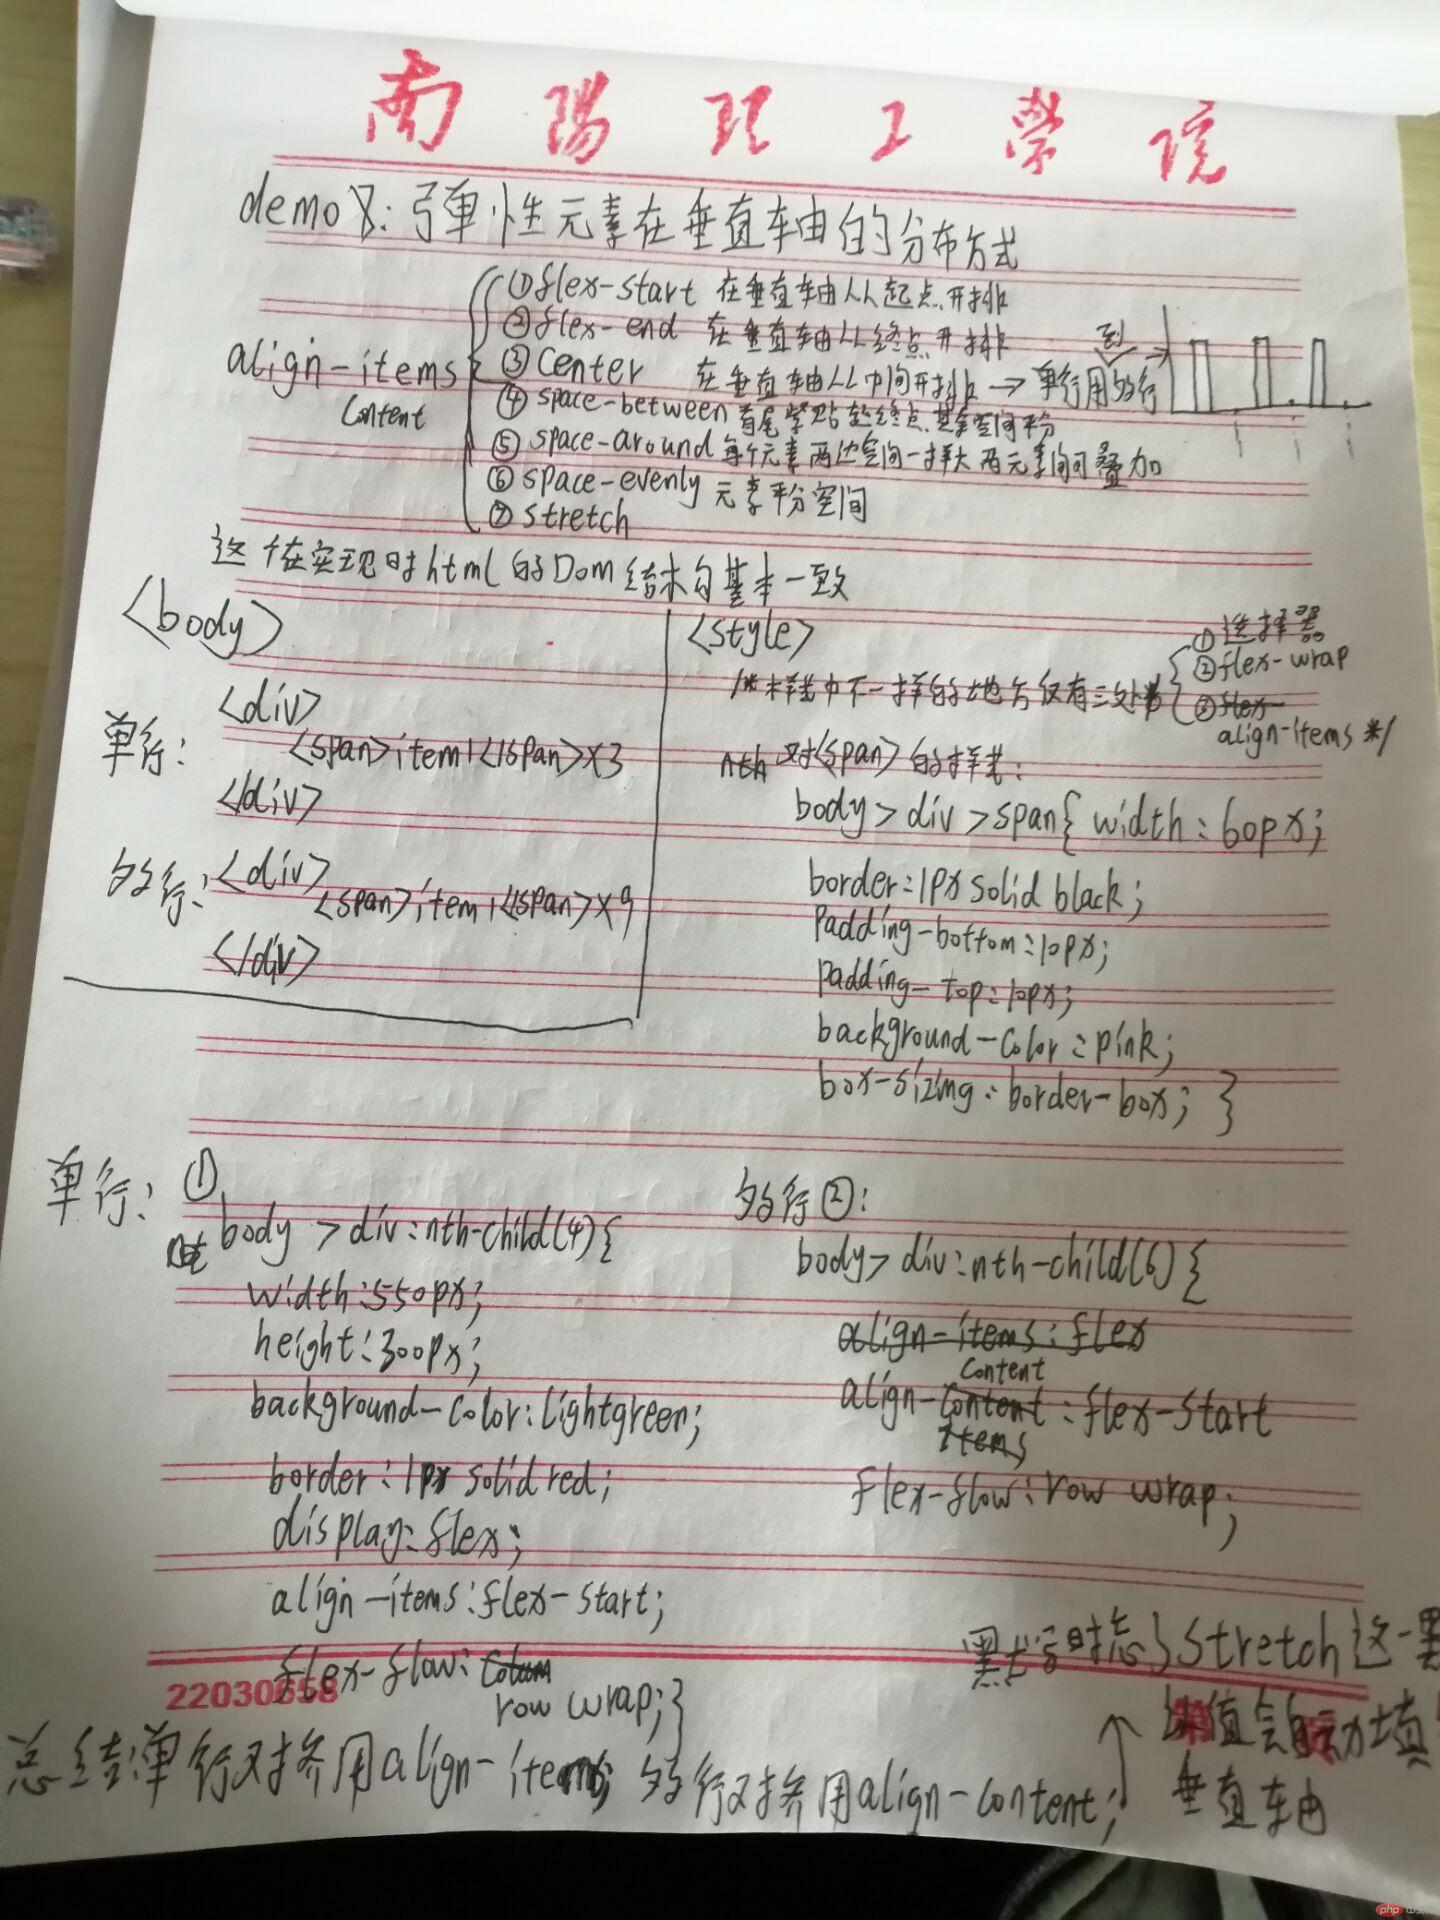 南阳理工学院
demo8:弹性元素在垂直轴的分布方式
①flex-start 在垂直轴从起点开排
②flex-end 在垂直轴从终点开排
align-items
content
③center 在垂直轴从中间开排→单行用多行
到
④space-between首尾紧贴起终点,其余空间平分
⑤space-around每个元素两边空间一样大 两元素间可叠加
⑥space-evenly 元素平分空间
⑦stretch
这个在实现时html的Dom结构基本一致
<body>
单行:
<div>
<span>item1</span>×3
</div>
多行:
<div>
<span>item1</span>×9
</div>
<style>
/*样式中不一样的地方仅有三处
①选择器
②flex-wrap
③flex-
align-items */
nth 对<span>的样式:
body>div>span{ width:60px;
border:1px solid black;
Padding-bottom:10px;
Padding-top:10px;
background-color:pink;
box-sizing:border-box; }
单行:①
body >div:nth-child(4){
width:550px;
height:300px;
background-color:lightgreen;
border:1px solid red;
display:flex;
align-items:flex-start;
flex-flow:colum
row wrap;}
22030658
多行②:
body>div:nth-child(6){
align-items:flex
content
align-content:flex-start
items
flex-flow:row wrap;
总结:单行对齐用align-items; 多行对齐用align-content;
默写时忘了stretch这一
值会自动填
垂直轴
php